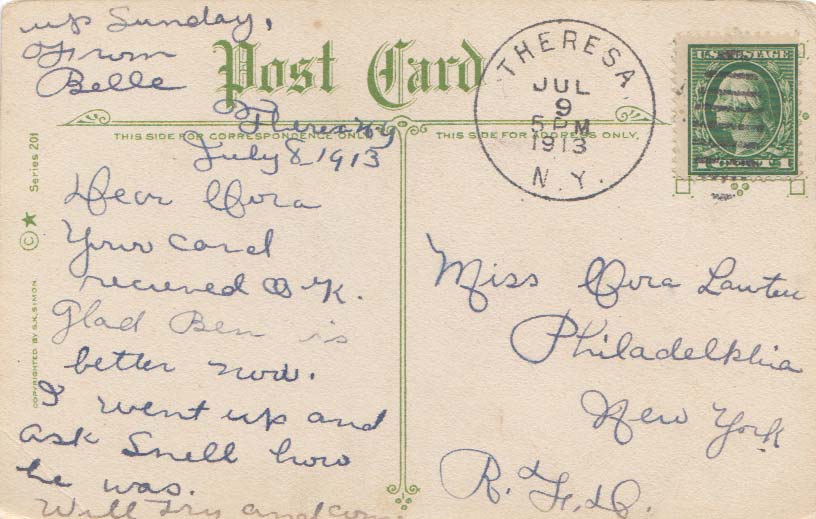 up Sunday,
From
Belle
Post Card
THERESA
JUL
9
5 PM
1913
N.Y.
U.S. POSTAGE
1 1
THIS SIDE FOR CORRESPONDENCE ONLY.
THIS SIDE FOR ADDRESS ONLY.
Theresa NY
July 8, 1913
Dear Cora
Your card
recieved O K.
Glad Ben is
better now.
I went up and
ask Snell how
he was.
Will try and com.
Miss Cora Lawten
Philadelphia
New York
R.F.D.
COPYRIGHTED BY S.K. SIMON
© ★ Series 201